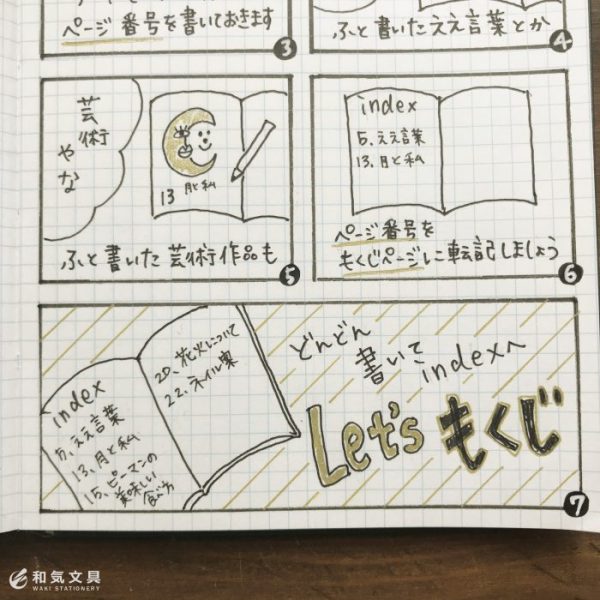 ページ番号を書いておきます
3
ふと書いたええ言葉とか
4
芸術
やな
13 月と私
ふと書いた芸術作品も
5
index
5. ええ言葉
13. 月と私
ページ番号を
もくじページに転記しましょう
6
index
5. ええ言葉
13. 月と私
15. ピーマンの
美味しい
食べ方
20. 花火について
22. ネイル案
どんどん
書いて
indexへ
Let's もくじ
7
和気文具
WAKI STATIONERY